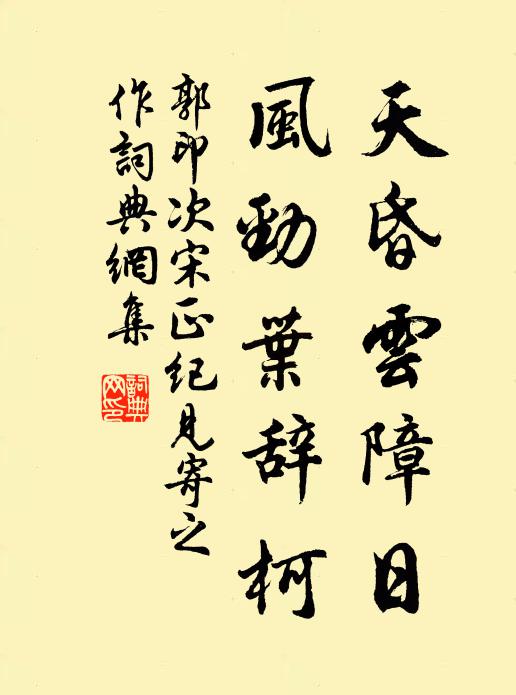 天昏雲障日
風勁葉辞柯
郭印次宋正紀見寄之
作詞典網集
詞典網印